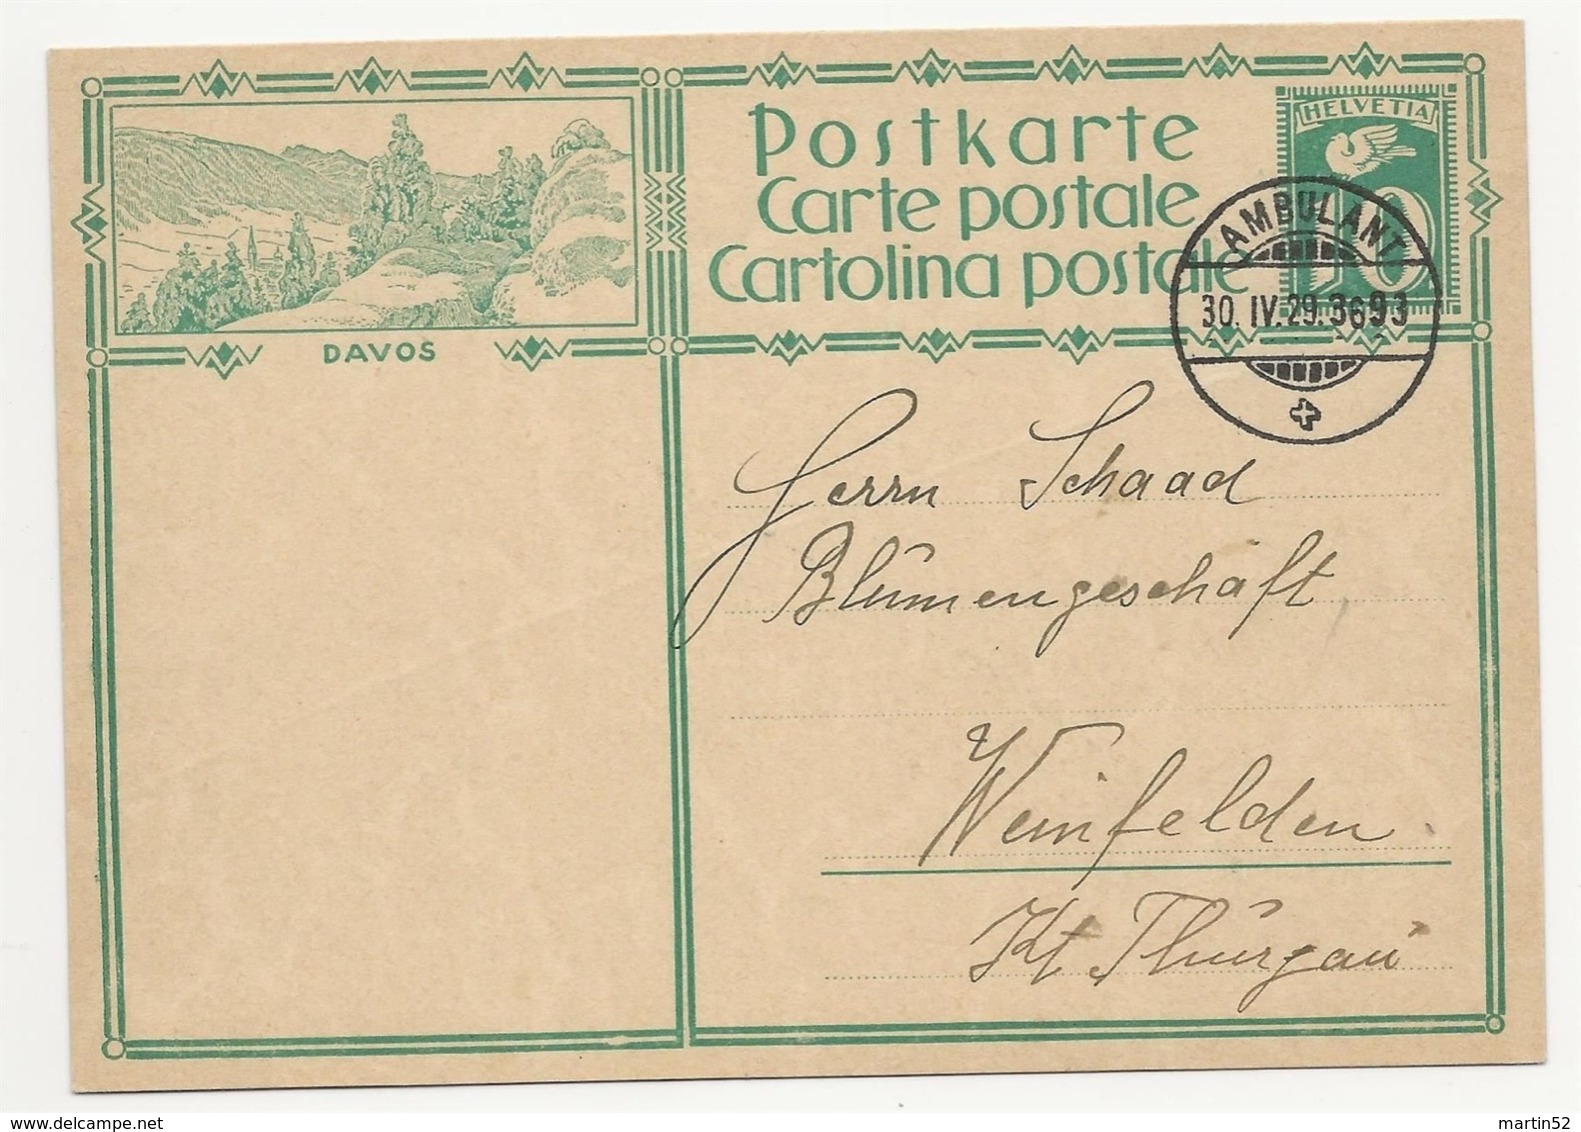 Postkarte
Carte postale
Cartolina postale
HELVETIA
10
AMBULANT
30.IV.29.3693
DAVOS
Herrn Schaad
Blumengeschäft
Weinfelden.
Kt. Thurgau
delcampe.net
martin52